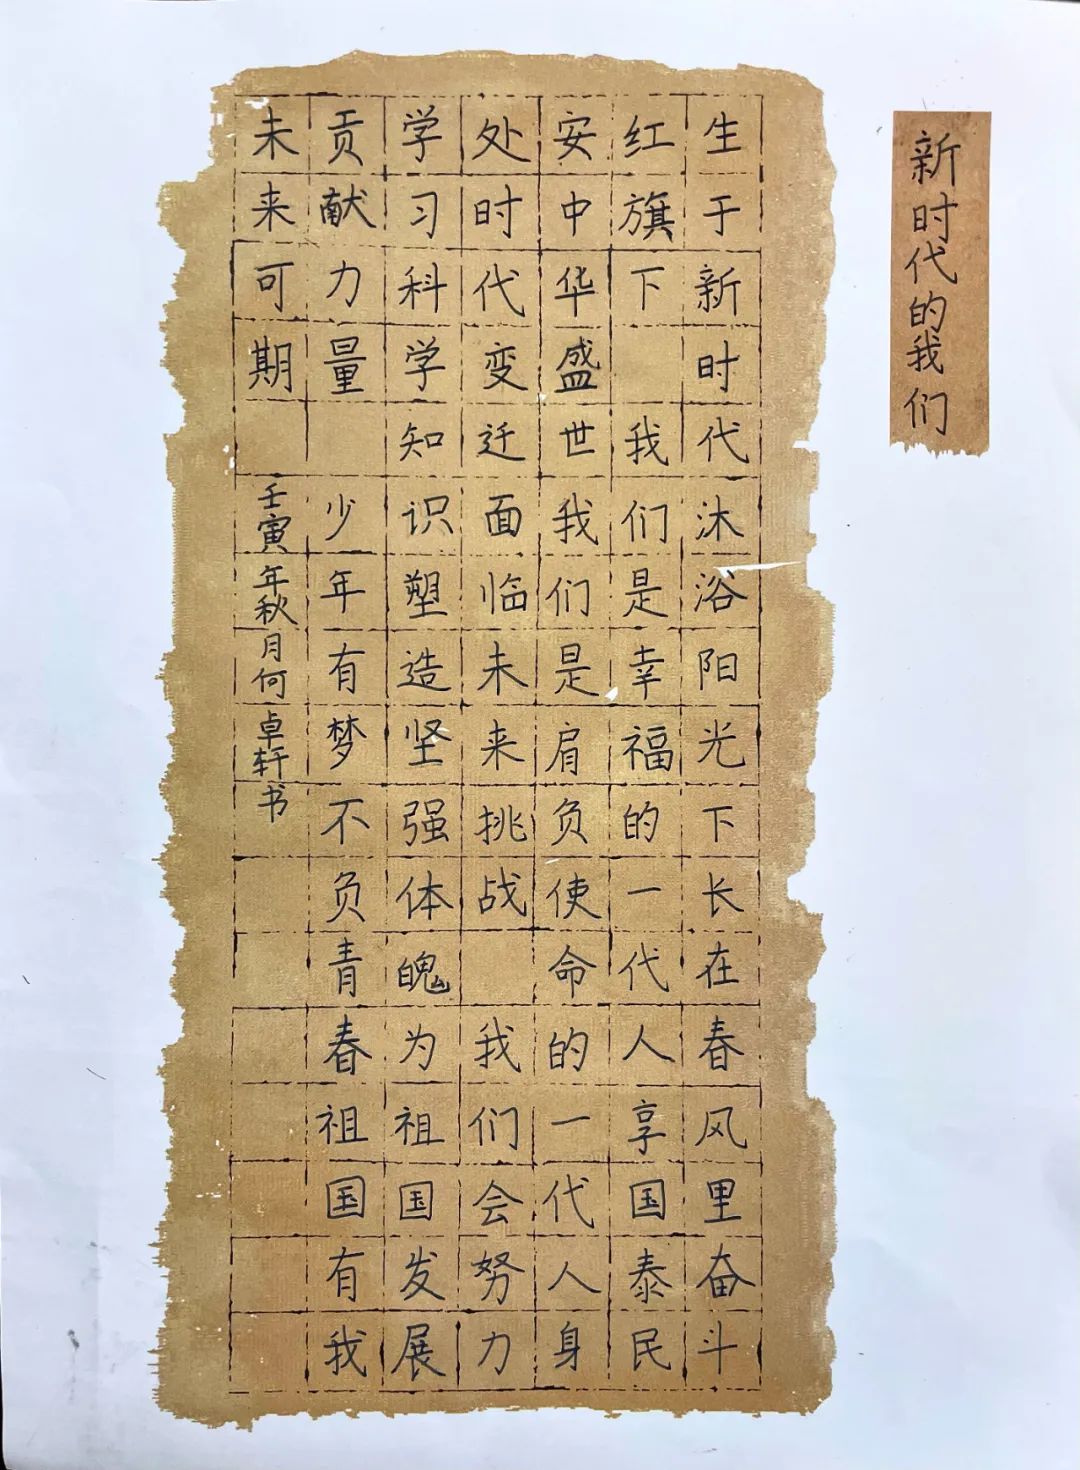 新时代的我们
生于新时代沐浴阳光下长在春风里奋斗
红旗下 我们是幸福的一代人享国泰民
安中华盛世我们是肩负使命的一代人身
处时代变迁面临未来挑战 我们会努力
学习科学知识塑造坚强体魄为祖国发展
贡献力量 少年有梦不负青春祖国有我
未来可期 壬寅年秋月何卓轩书